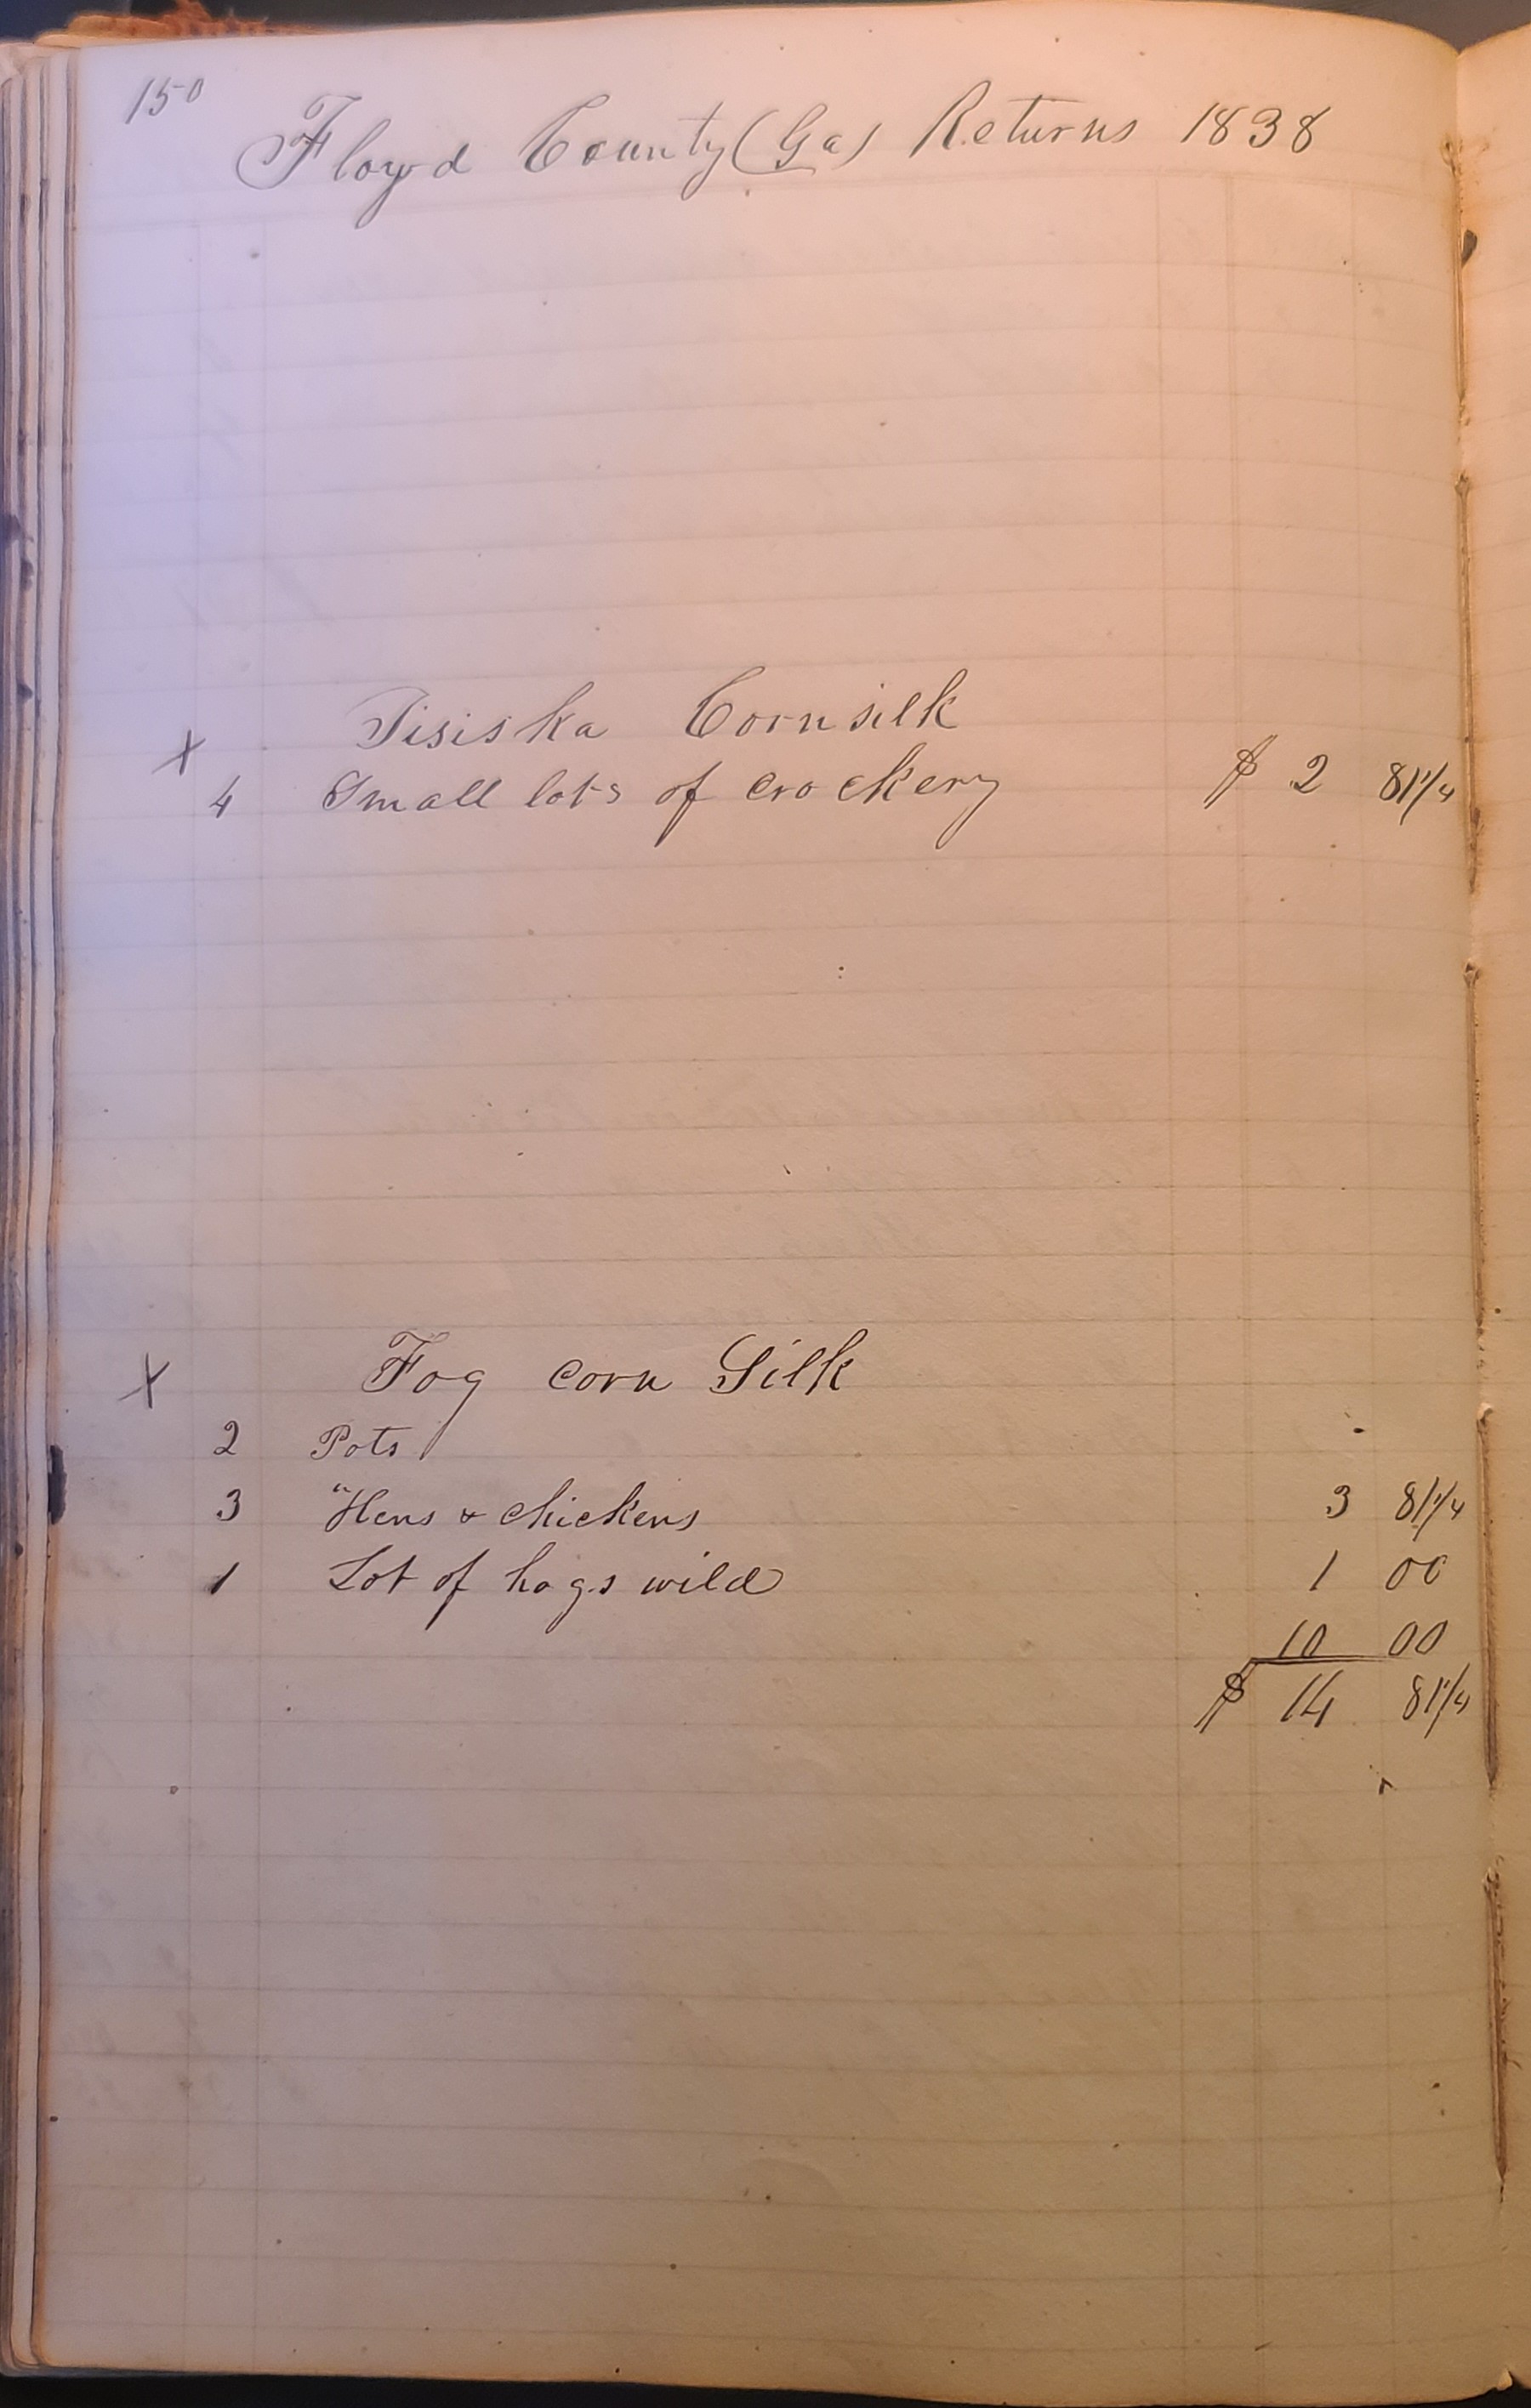 150
Floyd County (Ga) Returns 1838
x Tisiska Cornsilk
4 Small lots of crockery $ 2 81 1/4
x Fog corn Silk
2 Pots
3 "Hens & chickens 3 81 1/4
1 Lot of hogs wild 1 00
10 00
$ 14 81 1/4